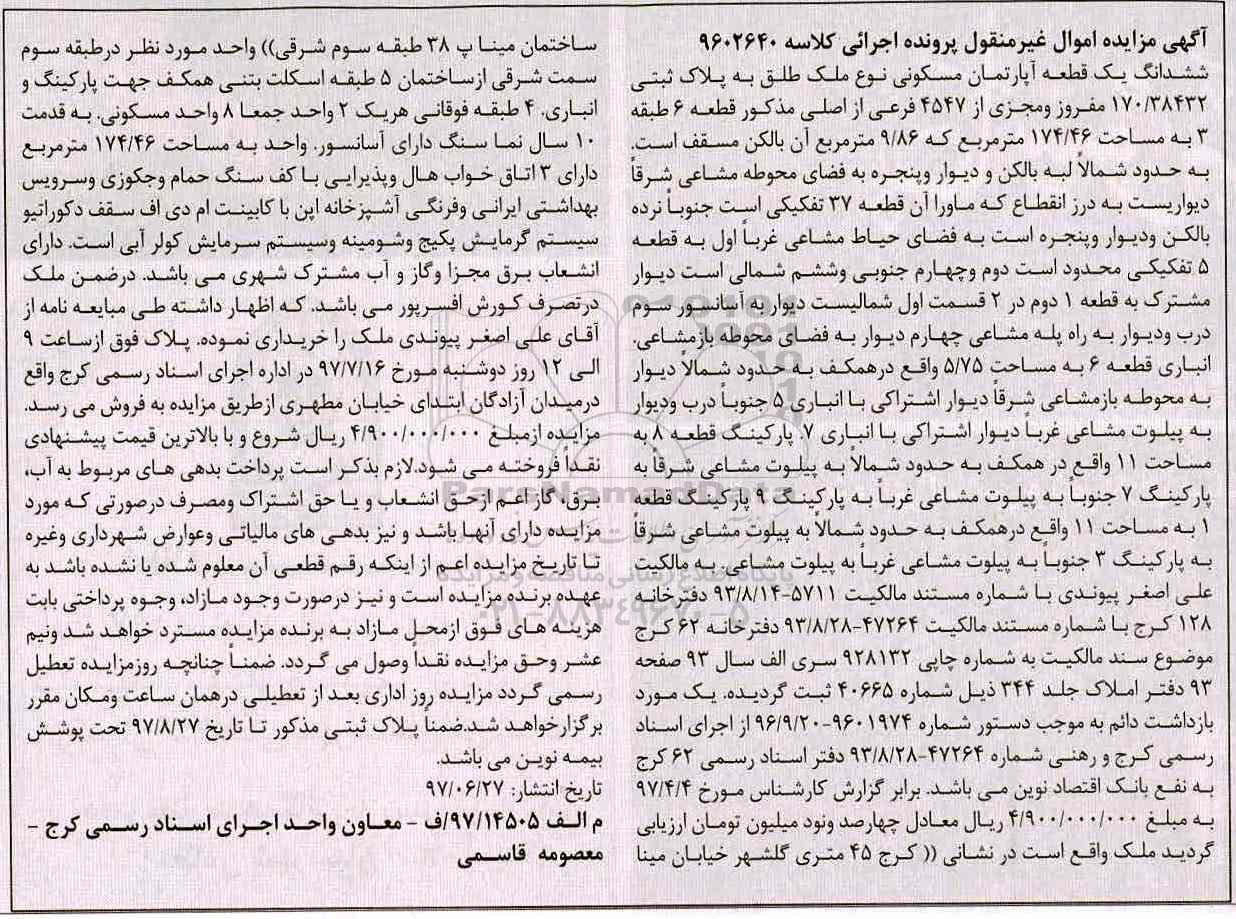 آگهی مزایده اموال غیرمنقول پرونده اجرائی کلاسه ۹۶۰۲۶۴۰
ششدانگ یک قطعه آپارتمان مسکونی نوع ملک طلق به پلاک ثبتی
۱۷۰/۳۸۴۳۲ مفروز ومجزی از ۴۵۴۷ فرعی از اصلی مذکور قطعه ۶ طبقه
۳ به مساحت ۱۷۴/۴۶ مترمربع که ۹/۸۶ مترمربع آن بالکن مسقف است.
به حدود شمالاً لبه بالکن و دیوار وپنجره به فضای محوطه مشاعی شرقاً
دیواریست به درز انقطاع که ماورا آن قطعه ۳۷ تفکیکی است جنوباً نرده
بالکن ودیوار وپنجره است به فضای حیاط مشاعی غرباً اول به قطعه
۵ تفکیکی محدود است دوم وچهارم جنوبی وششم شمالی است دیوار
مشترک به قطعه ۱ دوم در ۲ قسمت اول شمالیست دیوار به آسانسور سوم
درب ودیوار به راه پله مشاعی چهارم دیوار به فضای محوطه بازمشاعی.
انباری قطعه ۶ به مساحت ۵/۷۵ واقع درهمکف به حدود شمالاً دیوار
به محوطه بازمشاعی شرقاً دیوار اشتراکی با انباری ۵ جنوباً درب ودیوار
به پیلوت مشاعی غرباً دیوار اشتراکی با انباری ۷. پارکینگ قطعه ۸ به
مساحت ۱۱ واقع در همکف به حدود شمالاً به پیلوت مشاعی شرقاً به
پارکینگ ۷ جنوباً به پیلوت مشاعی غرباً به پارکینگ ۹ پارکینگ قطعه
۱ به مساحت ۱۱ واقع درهمکف به حدود شمالاً به پیلوت مشاعی شرقاً
به پارکینگ ۳ جنوباً به پیلوت مشاعی غرباً به پیلوت مشاعی. به مالکیت
علی اصغر پیوندی با شماره مستند مالکیت ۵۷۱۱-۹۳/۸/۱۴ دفترخانه
۱۲۸ کرج با شماره مستند مالکیت ۴۷۲۶۴-۹۳/۸/۲۸ دفترخانه ۶۲ کرج
موضوع سند مالکیت به شماره چاپی ۹۲۸۱۳۲ سری الف سال ۹۳ صفحه
۹۳ دفتر املاک جلد ۳۴۴ ذیل شماره ۴۰۶۶۵ ثبت گردیده. یک مورد
بازداشت دائم به موجب دستور شماره ۹۶۰۱۹۷۴-۹۶/۹/۲۰ از اجرای اسناد
رسمی کرج و رهنی شماره ۴۷۲۶۴-۹۳/۸/۲۸ دفتر اسناد رسمی ۶۲ کرج
به نفع بانک اقتصاد نوین می باشد. برابر گزارش کارشناس مورخ ۹۷/۴/۴
به مبلغ ۴/۹۰۰/۰۰۰/۰۰۰ ریال معادل چهارصد ونود میلیون تومان ارزیابی
گردید ملک واقع است در نشانی (( کرج ۴۵ متری گلشهر خیابان مینا
ساختمان مینا پ ۳۸ طبقه سوم شرقی)) واحد مورد نظر درطبقه سوم
سمت شرقی ازساختمان ۵ طبقه اسکلت بتنی همکف جهت پارکینگ و
انباری. ۴ طبقه فوقانی هریک ۲ واحد جمعا ۸ واحد مسکونی. به قدمت
۱۰ سال نما سنگ دارای آسانسور. واحد به مساحت ۱۷۴/۴۶ مترمربع
دارای ۳ اتاق خواب هال وپذیرایی با کف سنگ حمام وجکوزی وسرویس
بهداشتی ایرانی وفرنگی آشپزخانه اپن با کابینت ام دی اف سقف دکوراتیو
سیستم گرمایش پکیج وشومینه وسیستم سرمایش کولر آبی است. دارای
انشعاب برق مجزا وگاز و آب مشترک شهری می باشد. درضمن ملک
درتصرف کورش افسرپور می باشد. که اظهار داشته طی مبایعه نامه از
آقای علی اصغر پیوندی ملک را خریداری نموده. پلاک فوق ازساعت ۹
الی ۱۲ روز دوشنبه مورخ ۹۷/۷/۱۶ در اداره اجرای اسناد رسمی کرج واقع
درمیدان آزادگان ابتدای خیابان مطهری ازطریق مزایده به فروش می رسد.
مزایده ازمبلغ ۴/۹۰۰/۰۰۰/۰۰۰ ریال شروع و با بالاترین قیمت پیشنهادی
نقداً فروخته می شود.لازم بذکر است پرداخت بدهی های مربوط به آب،
برق، گاز اعم ازحق انشعاب و یا حق اشتراک ومصرف درصورتی که مورد
مزایده دارای آنها باشد و نیز بدهی های مالیاتی وعوارض شهرداری وغیره
تا تاریخ مزایده اعم از اینکه رقم قطعی آن معلوم شده یا نشده باشد به
عهده برنده مزایده است و نیز درصورت وجود مازاد، وجوه پرداختی بابت
هزینه های فوق ازمحل مازاد به برنده مزایده مسترد خواهد شد ونیم
عشر وحق مزایده نقداً وصول می گردد. ضمناً چنانچه روزمزایده تعطیل
رسمی گردد مزایده روز اداری بعد از تعطیلی درهمان ساعت ومکان مقرر
برگزارخواهد شد.ضمناً پلاک ثبتی مذکور تا تاریخ ۹۷/۸/۲۷ تحت پوشش
بیمه نوین می باشد.
تاریخ انتشار: ۹۷/۰۶/۲۷
م الف ۹۷/۱۴۵۰۵/ف - معاون واحد اجرای اسناد رسمی کرج -
معصومه قاسمی
ParsNamadData
پایگاه اطلاع رسانی مناقصه و مزایده
۰۲۱-۸۸۳۴۹۶۷۰-۵